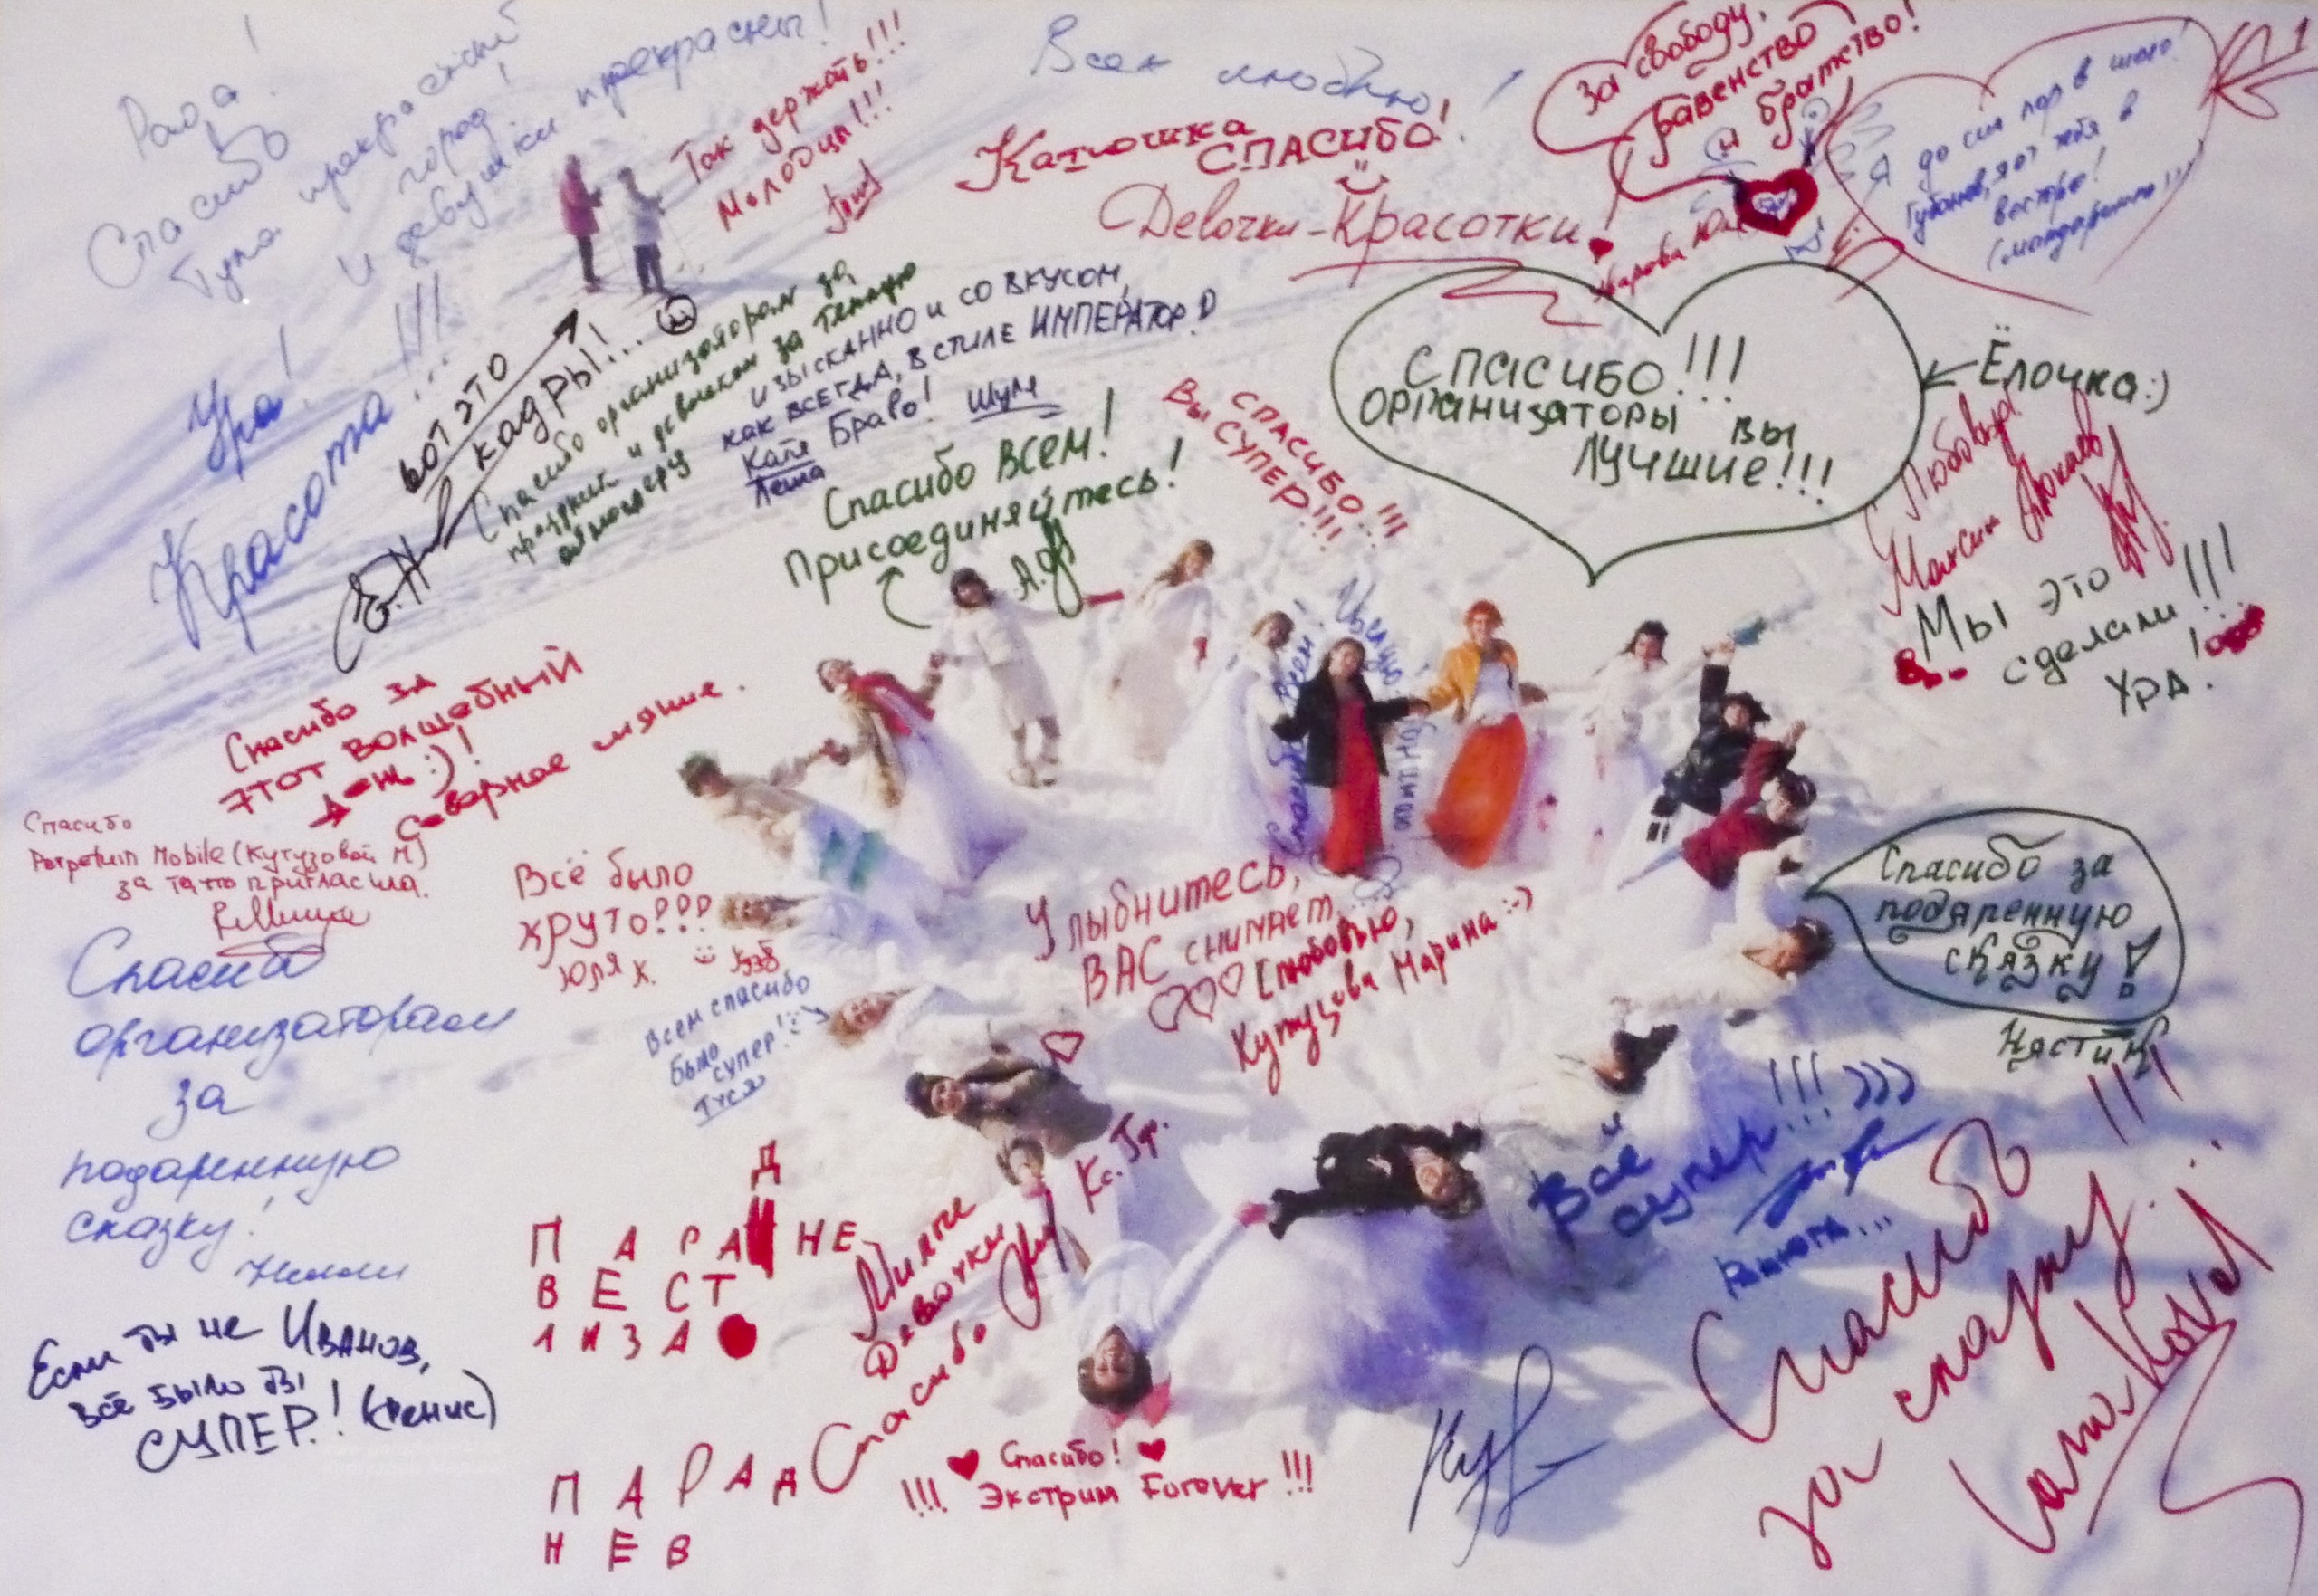 Рада!
Спасибо
Тула прекрасный
город!
и девушки прекрасны!
Так держать!!!
Молодцы!!!
Всех люблю!
Катюшка
СПАСИБО!
Девочки-Красотки
За свободу,
равенство
и братство!
Я до сих пор в шоке!
восторг!
Ура!
Красота!!!
ВОТ ЭТО
кадры!...
Е.Н.
Спасибо организаторам за
праздник и девчонкам за теплую
атмосферу
ИЗЫСКАННО и СО ВКУСОМ,
как ВСЕГДА, В СТИЛЕ ИМПЕРАТОР.D
Катя Браво! Шум
Леша
Спасибо Всем!
Присоединяйтесь!
А.Ф
СПАСИБО!!!
Вы СУПЕР!!!
СПАСИБО!!!
ОРГАНИЗАТОРЫ ВЫ
ЛУЧШИЕ!!!
Ёлочка:)
Максим
Мы это
сделали!!!
УРА!
Спасибо за
этот волшебный
день:)!
Северное сияние.
Спасибо
Perpetum Mobile (Кутузовой М)
за то что пригласила.
Всё было
круто???
Юля К.
Всем спасибо
было
супер!
Туся
Спасибо всем!
Улыбнитесь,
ВАС снимает
С любовью,
Кутузова Марина:-)
Спасибо за
подаренную
сказку!
Настик
Спасибо
организаторам
за
подаренную
сказку!
Если ты не Иванов,
всё было бы
СУПЕР.! (Денис)
Д
ПАРА НЕ
ВЕСТ
ЛИЗА
Милые
Девочки
Спасибо
Кс. Гр.
ПАРАД
НЕВ
Спасибо!
!!! Экстрим Forever !!!
Всё
супер!!!)))
Спасибо!!!
за сказку...